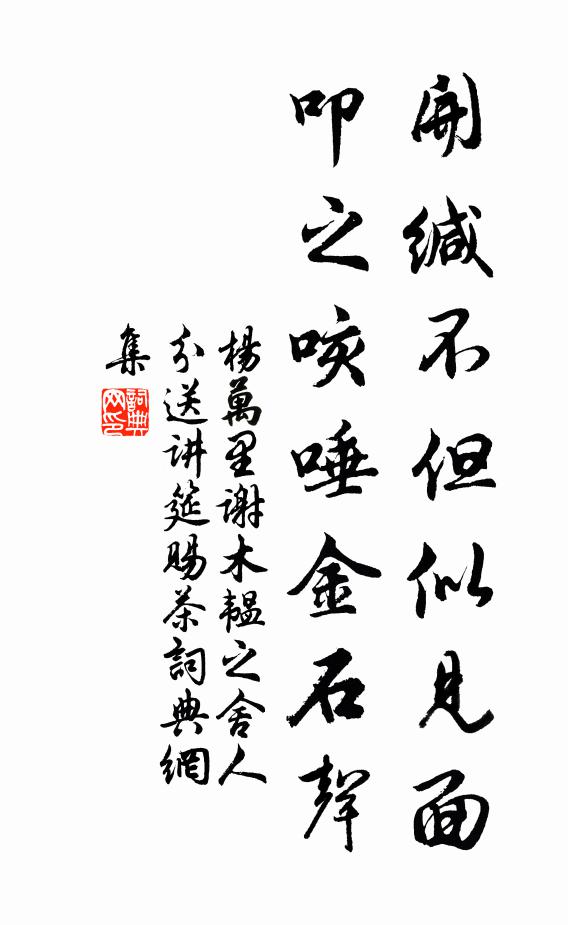 開缄不但似見面
叩之咳唾金石聲
楊萬里謝木韞之舍人
分送讲筵賜茶詞典網
集
詞典
网印